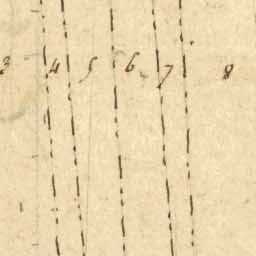 3 4 5 6 7 8